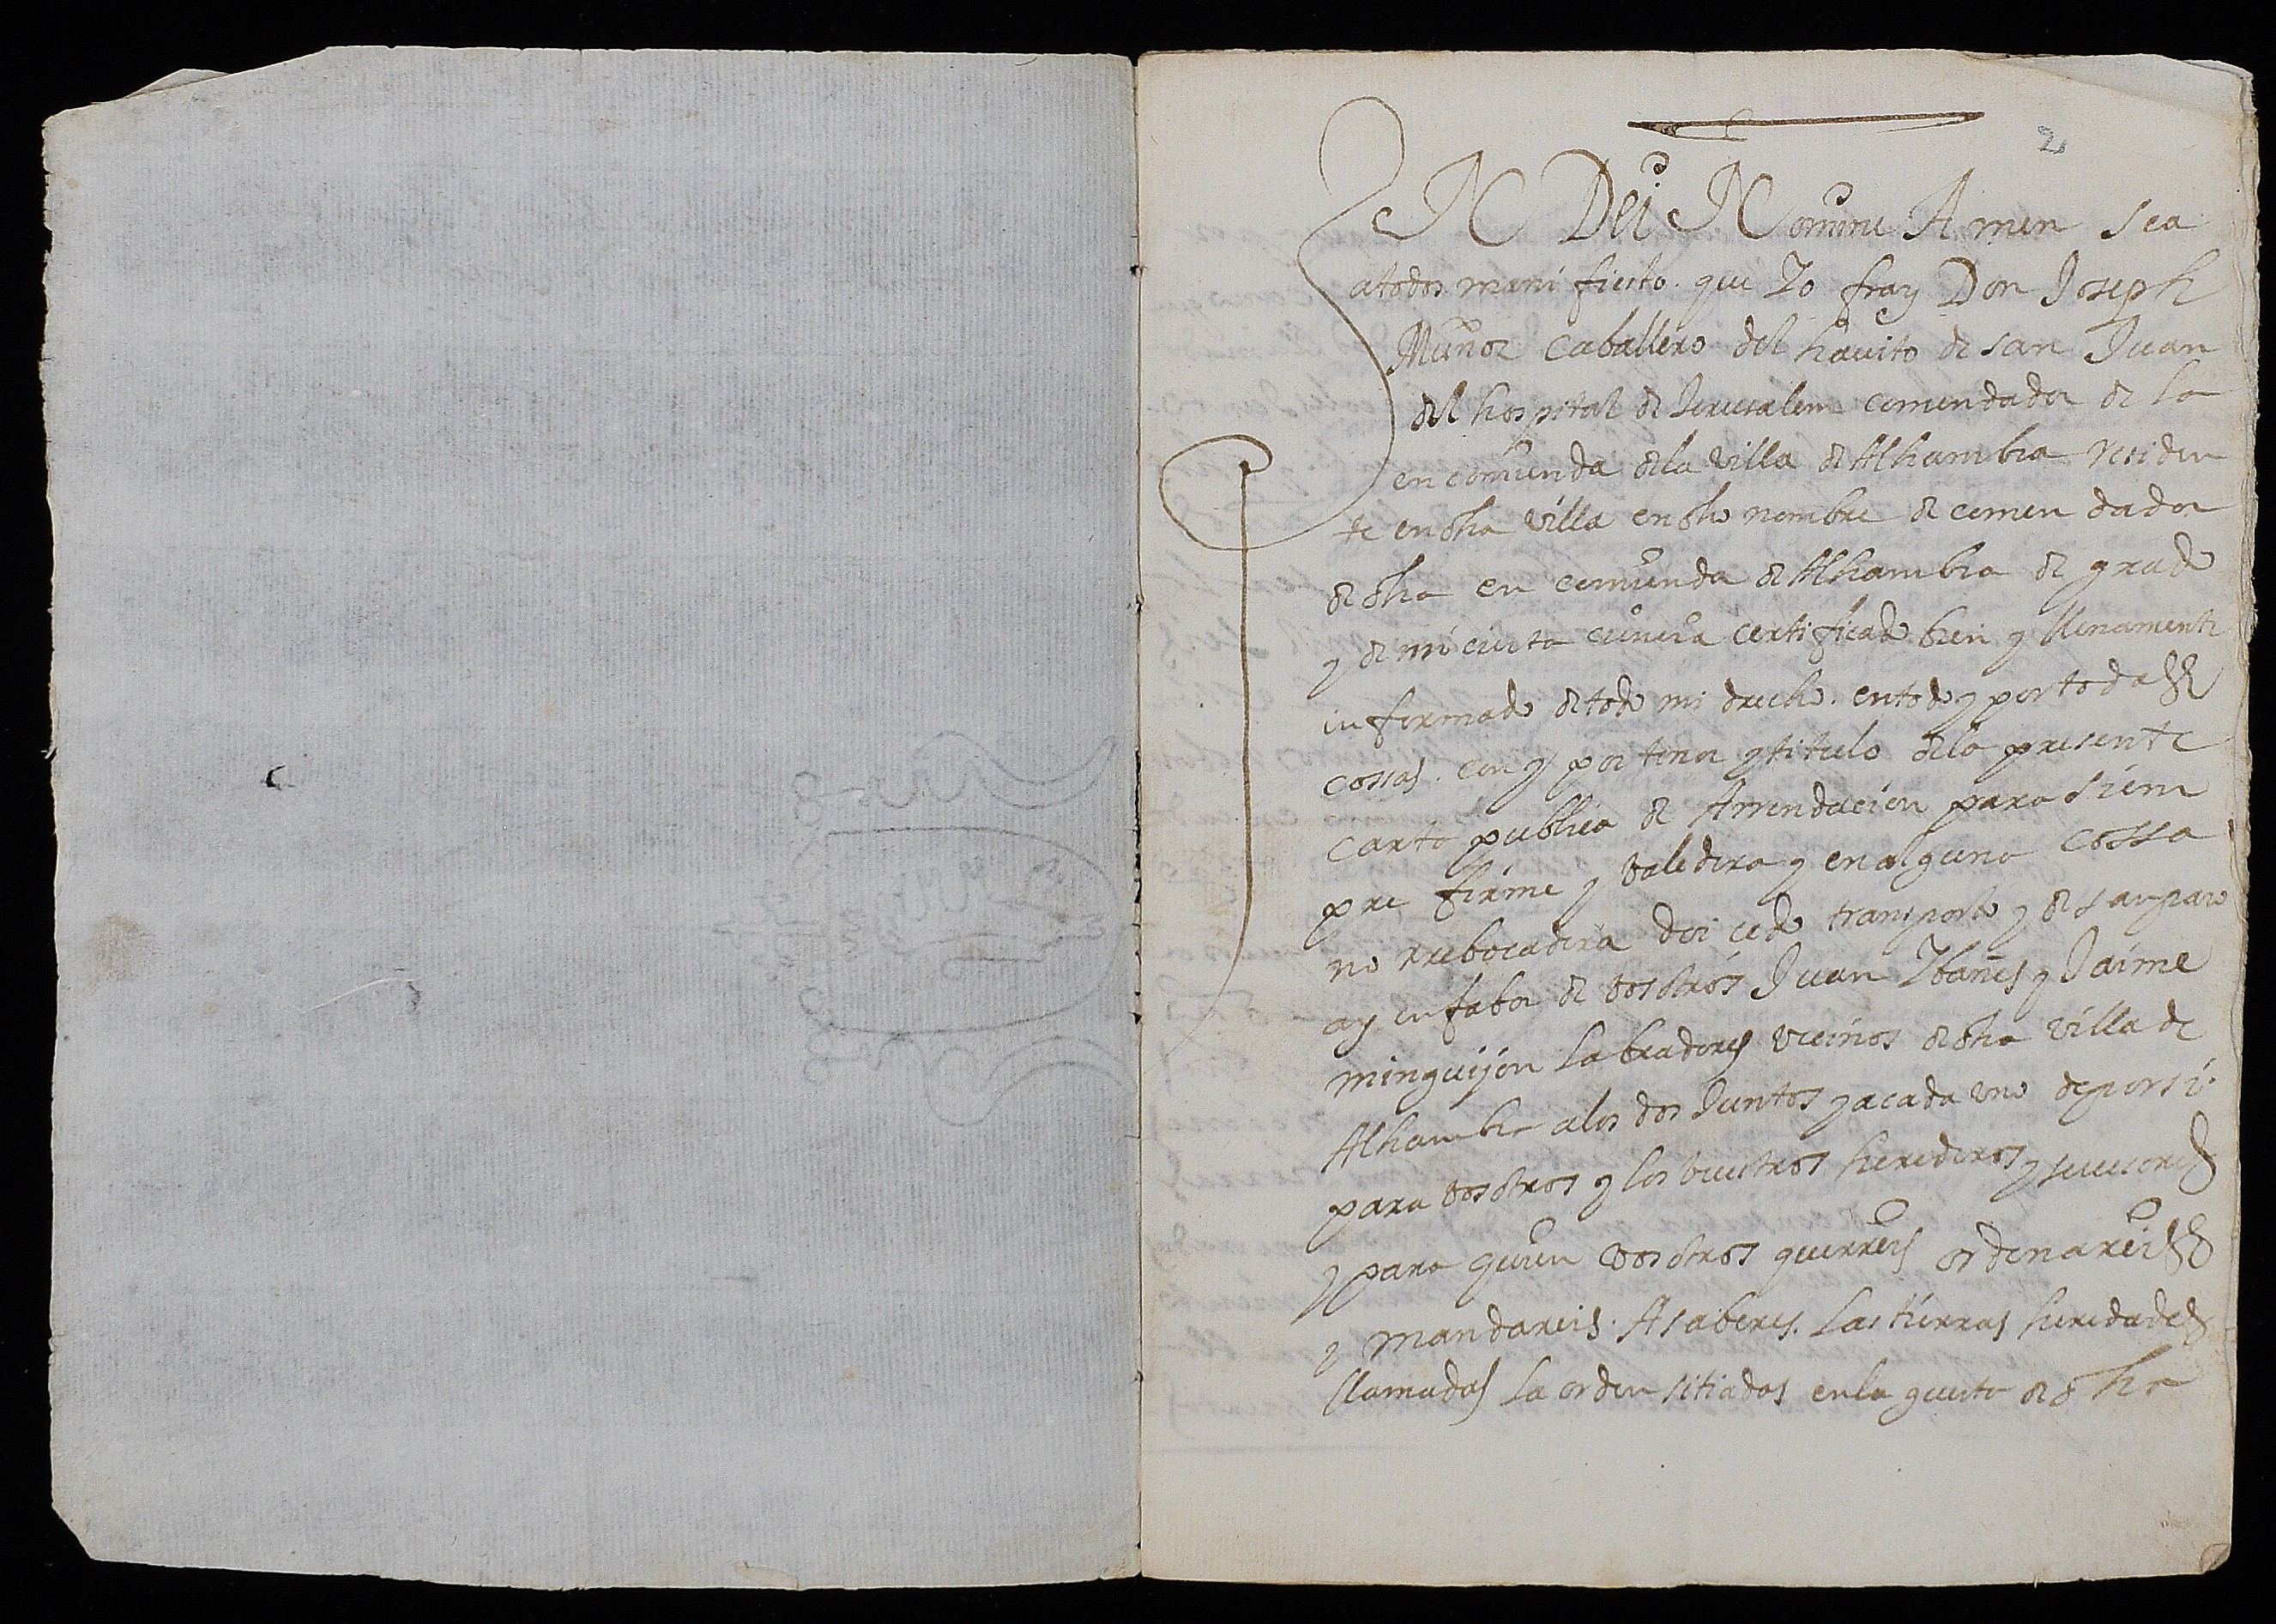 2
IN Dei Nomine Amen sea
atodos manifiesto. que Yo fray Don Joseph
Muñoz caballero del hauito de san Juan
del hospital de Jerusalem comendador de la
encomienda dela villa de Alhambra residen
te en dha villa en dho nombre de comendador
de dha encomienda de Alhambra de grado
y de mi cierta ciencia certificado bien y llenamente
informado de todo mi drecho. en todo y por todas
cossas. con y por tenor y titulo dela presente
carta publica de Arrendacion para siem
pre firme y valedera y en alguna cossa
no rrebocadera doi cedo transporto y desamparo
ay en fabor de vosotros Juan Ybañes y Jaime
minguijon labradores vecinos de dha villa de
Alhambra alos dos Juntos y acada uno de por si.
para vosotros y los vuestros herederos y sucesores
y para quien vosotros querreis ordenareis
y mandareis. Asaberes. Las tierras heredades
llamadas la orden sitiadas en la guerta de dha